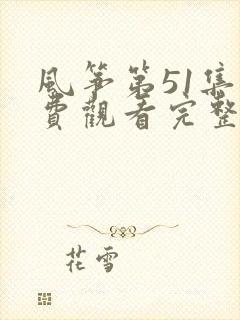 風筝第51集
費觀看完整
花雪